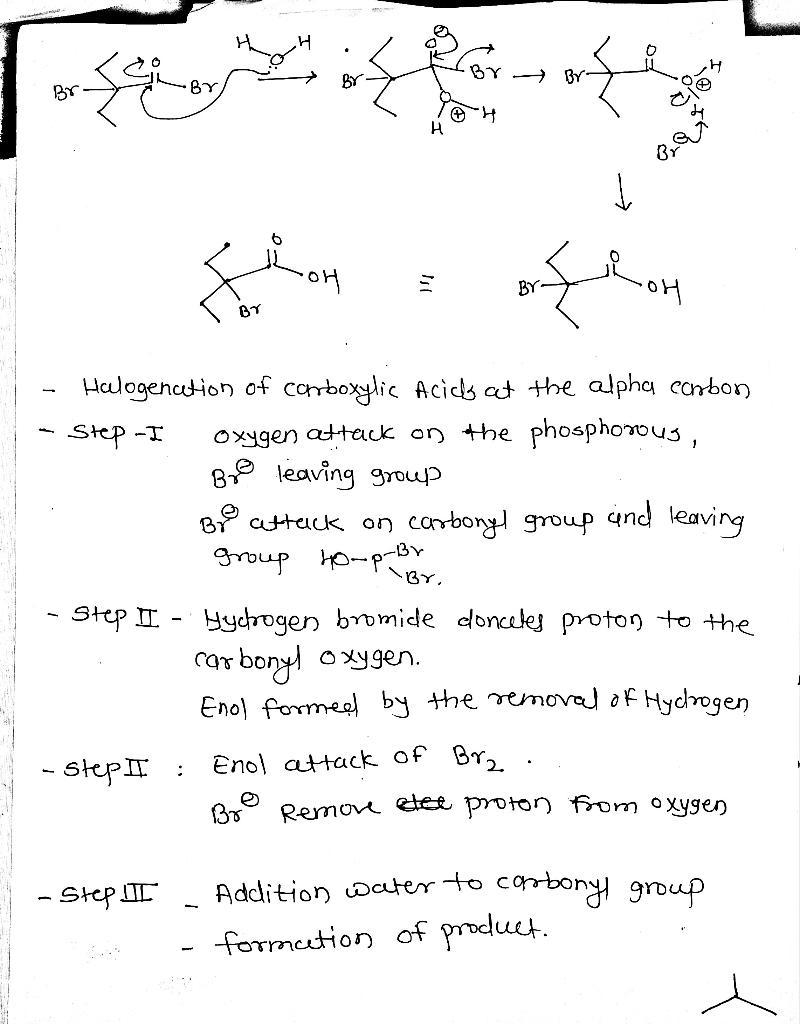 H H
Br O Br O
Br O Br O H H ⊕
Br O O H ⊕ H
Br⊖
O OH Br ≡ Br O OH
- Halogenation of carboxylic Acids at the alpha carbon
- Step-I oxygen attack on the phosphorous,
Br⊖ leaving group
Br⊖ attack on carbonyl group and leaving
group HO-P-Br
Br.
- Step II - Hydrogen bromide donates proton to the
carbonyl oxygen.
Enol formed by the removal of Hydrogen
- Step II : Enol attack of Br2.
Br⊖ Remove proton from oxygen
- Step III - Addition water to carbonyl group
- formation of product.